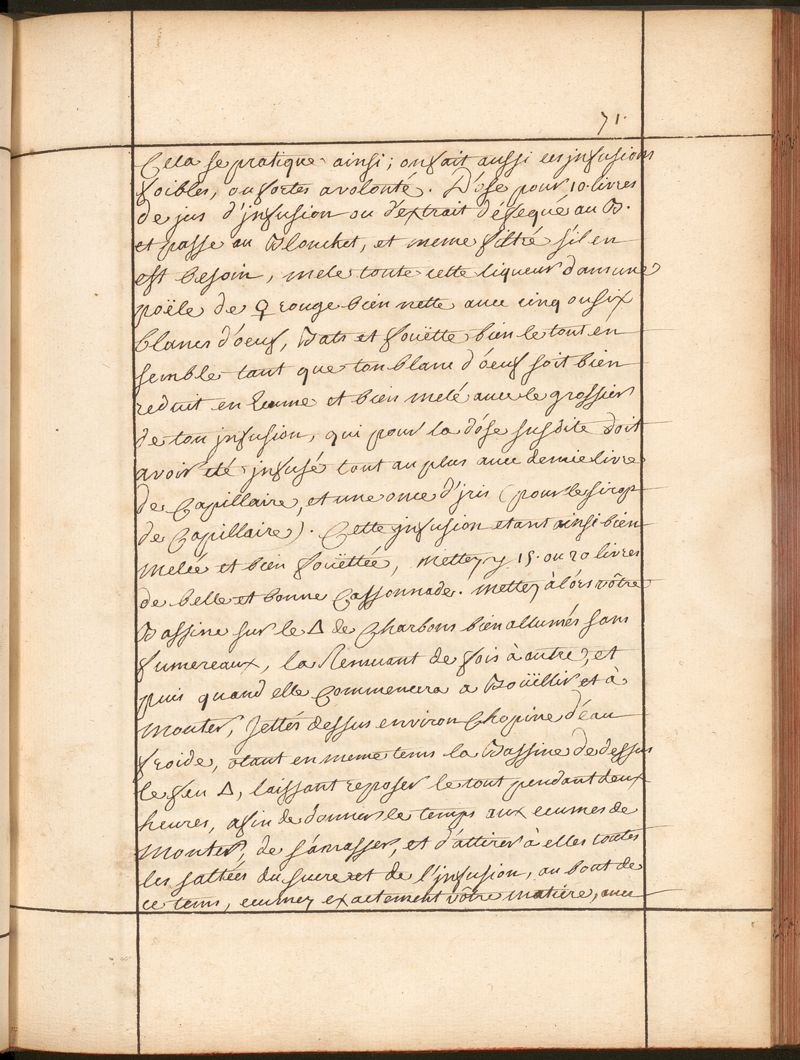 71.
Cela se pratique ainsi; on fait aussi ces jnfusions
foibles, ou fortes a volonté. Dóse pour 10. livres
de jus d'jnfusion ou d'extrait déféqué au B.
et passe au Blanchet, et meme filtré s'il en
est besoin, mele toute cette liqueur dans une
poële de ♀ rouge bien nette avec cinq ou six
blancs d'oeuf, Bats et foüette bien le tout en
semble tant que ton blanc d'óeuf soit bien
reduit en Ecume et bien melé avec le grossier
de ton jnfusion, qui pour la dóse susdite doit
avoir été jnfusé tout au plus avec demie livre
de Capillaire, et une once d'jris (pour le sirop
de Capillaire). Cette jnfusion etant ainsi bien
melée et bien foüettée, mettez y 15. ou 20 livres
de belle et bonne Cassonnade. mettez àlórs vôtre
Bassine sur le △ de Charbons bien allumés sans
fumereaux, la Remuant de fois à autre, et
puis quand elle Commencera a Boüillir et à
Monter, Jettés dessus environ Chopine d'éau
froide, otant en meme tems la Bassine de dessus
le feu △, laissant reposer le tout pendant deux
heures, afin de donner le temps aux ecumes de
Monter, de s'amasser, et d'attirer à elles toutes
les saltées du sucre et de l'jnfusion, au bout de
ce tems, ecumez exactement vôtre matiére, avec